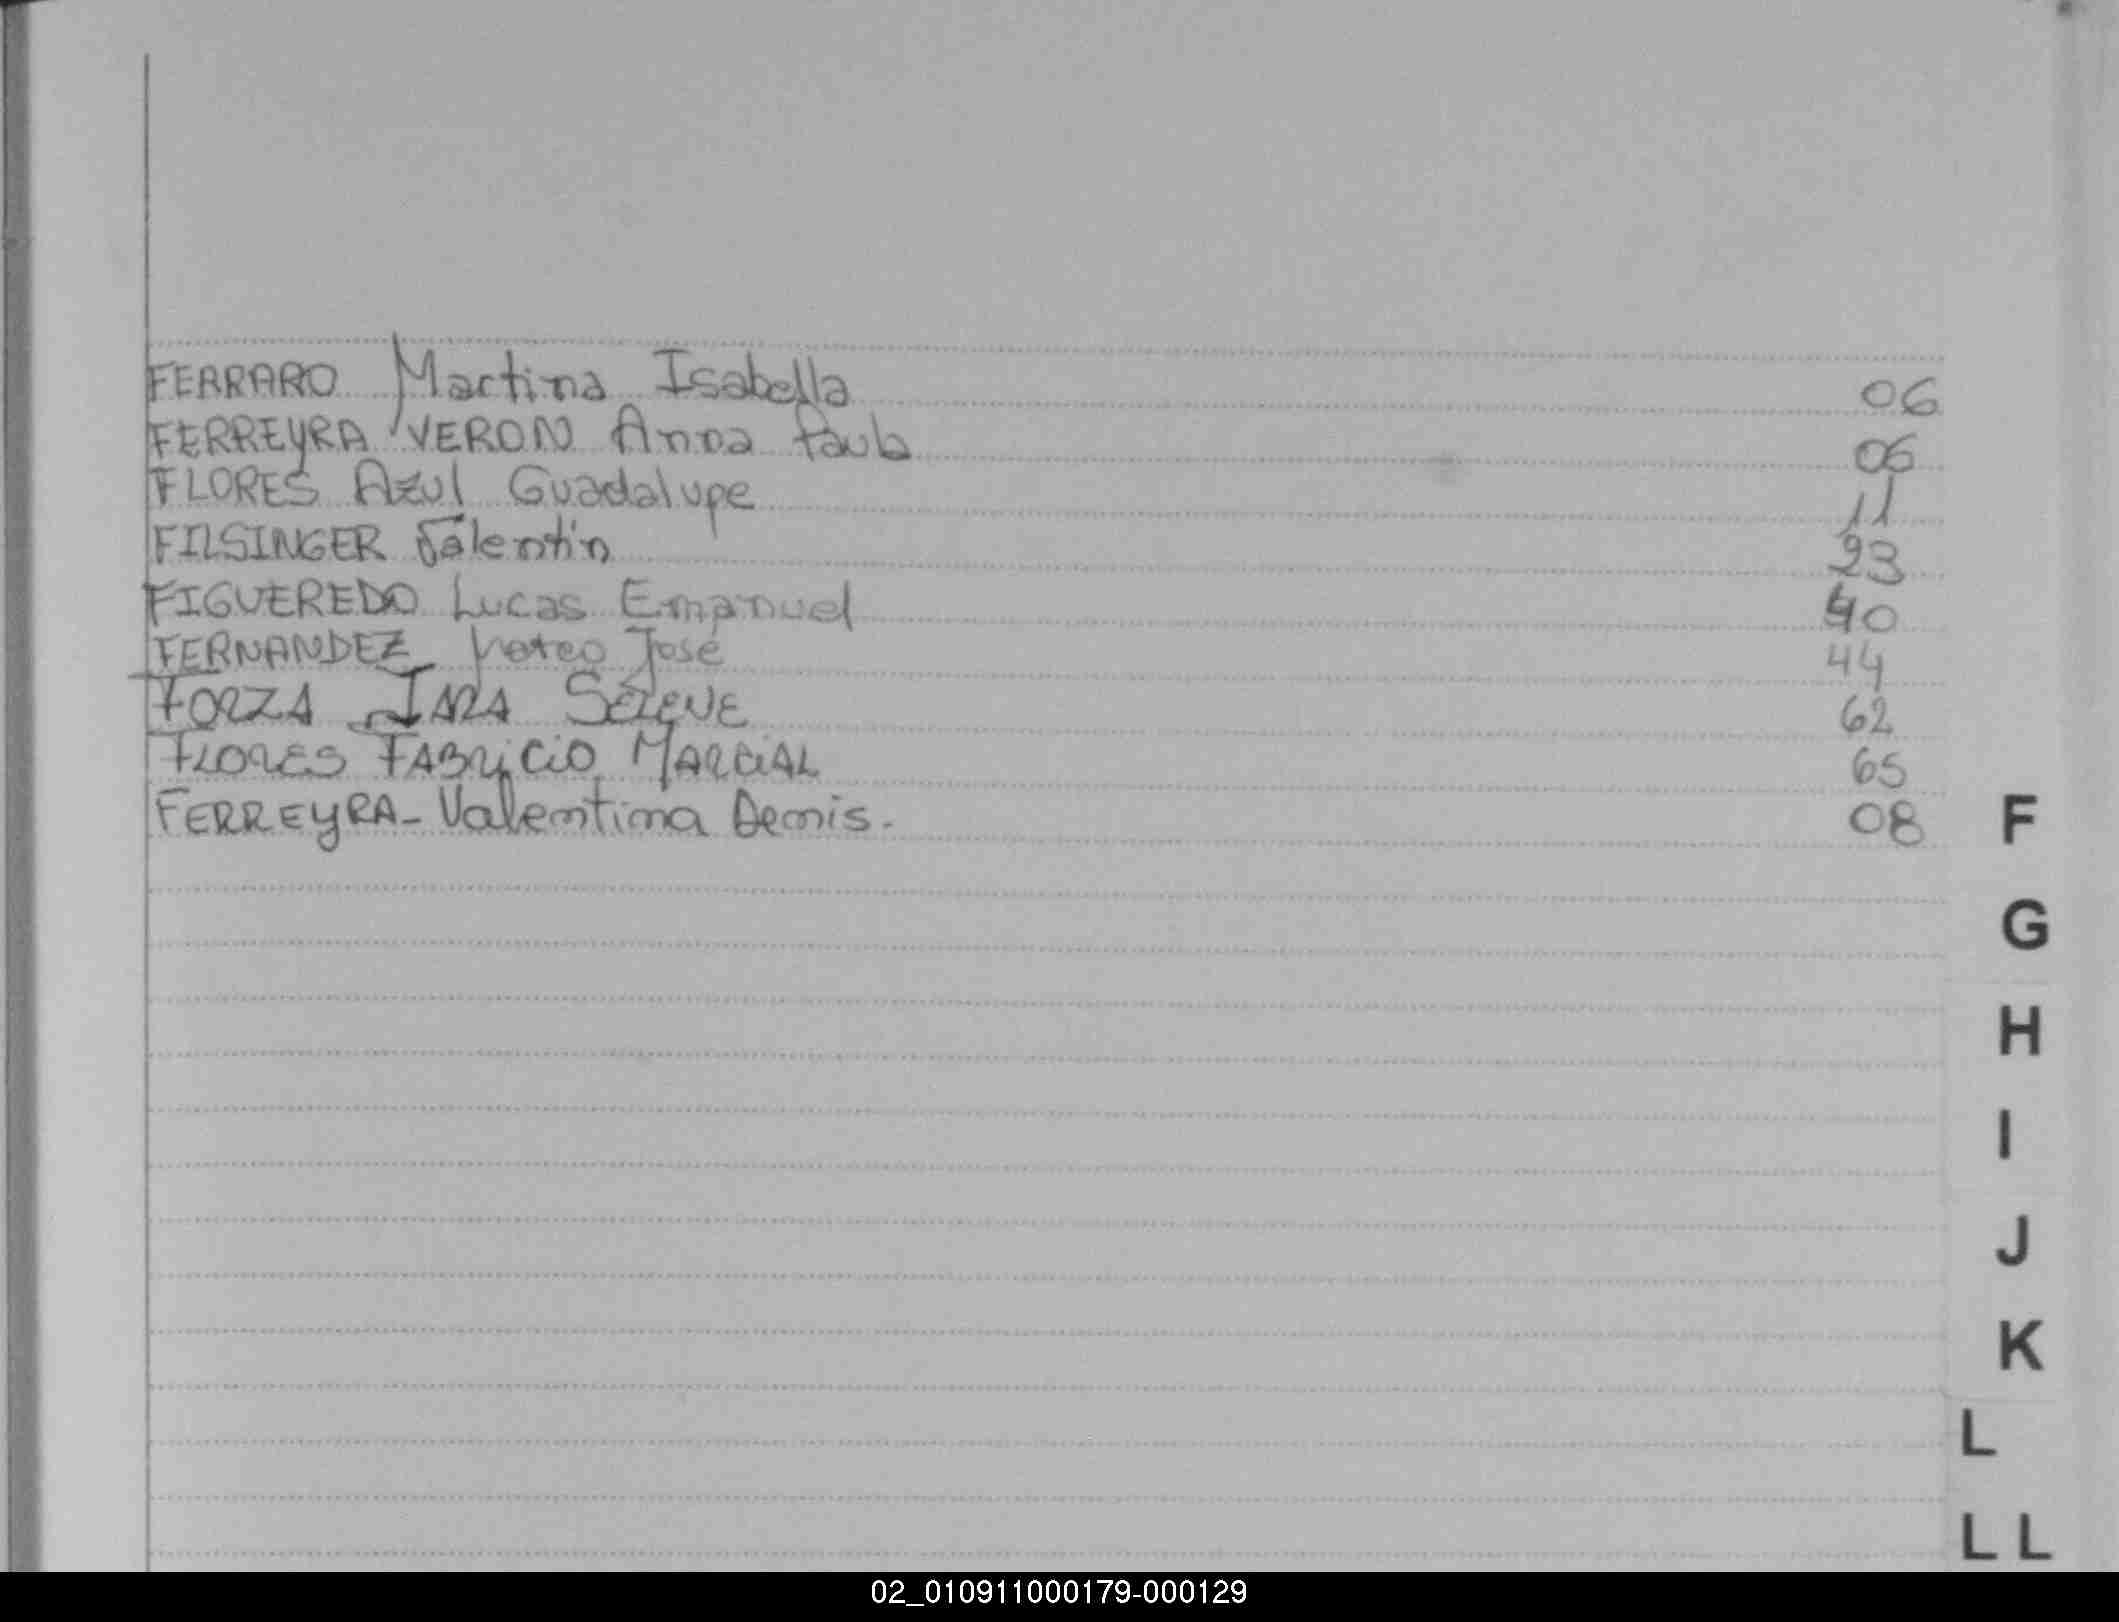 FERRARO Martina Isabella 06
FERREYRA VERON Anna Paula 06
FLORES Azul Guadalupe 11
FILSINGER Valentín 23
FIGUEREDO Lucas Emanuel 40
FERNANDEZ Mateo José 44
FORZA IARA SELENE 62
FLORES FABRICIO MARCIAL 65
FERREYRA - Valentina Denis. 08
F
G
H
I
J
K
L
LL
02_010911000179-000129